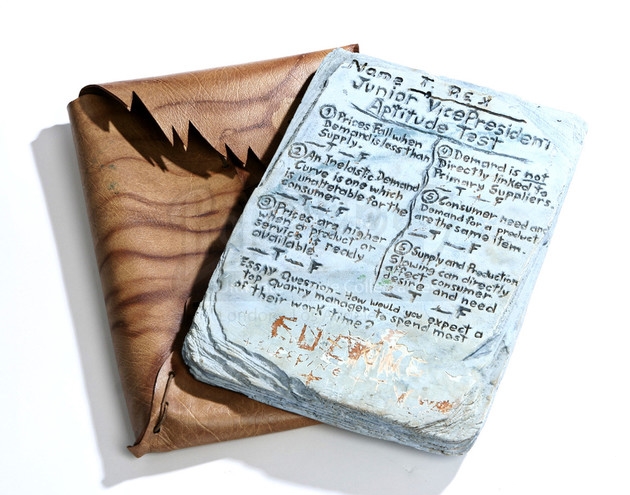 Name T. REX
Junior Vice President
Aptitude Test
① Prices Fall when
Demand is less than
Supply.
_ T _ F
② An Inelastic Demand
Curve is one which
is unalterable for the
consumer
_ T _ F
③ Prices are higher
when a product/
service is ready
available
_ T _ F
④ Demand is not
Directly linked to
Primary Suppliers.
_ T _ F
⑤ Consumer need and
Demand for a product
are the same item.
_ T _ F
⑥ Supply and Production
Slowing can directly
affect consumer
desire and need
_ T _ F
Essay Question: How would you expect a
top Quarry manager to spend most
of their work time?